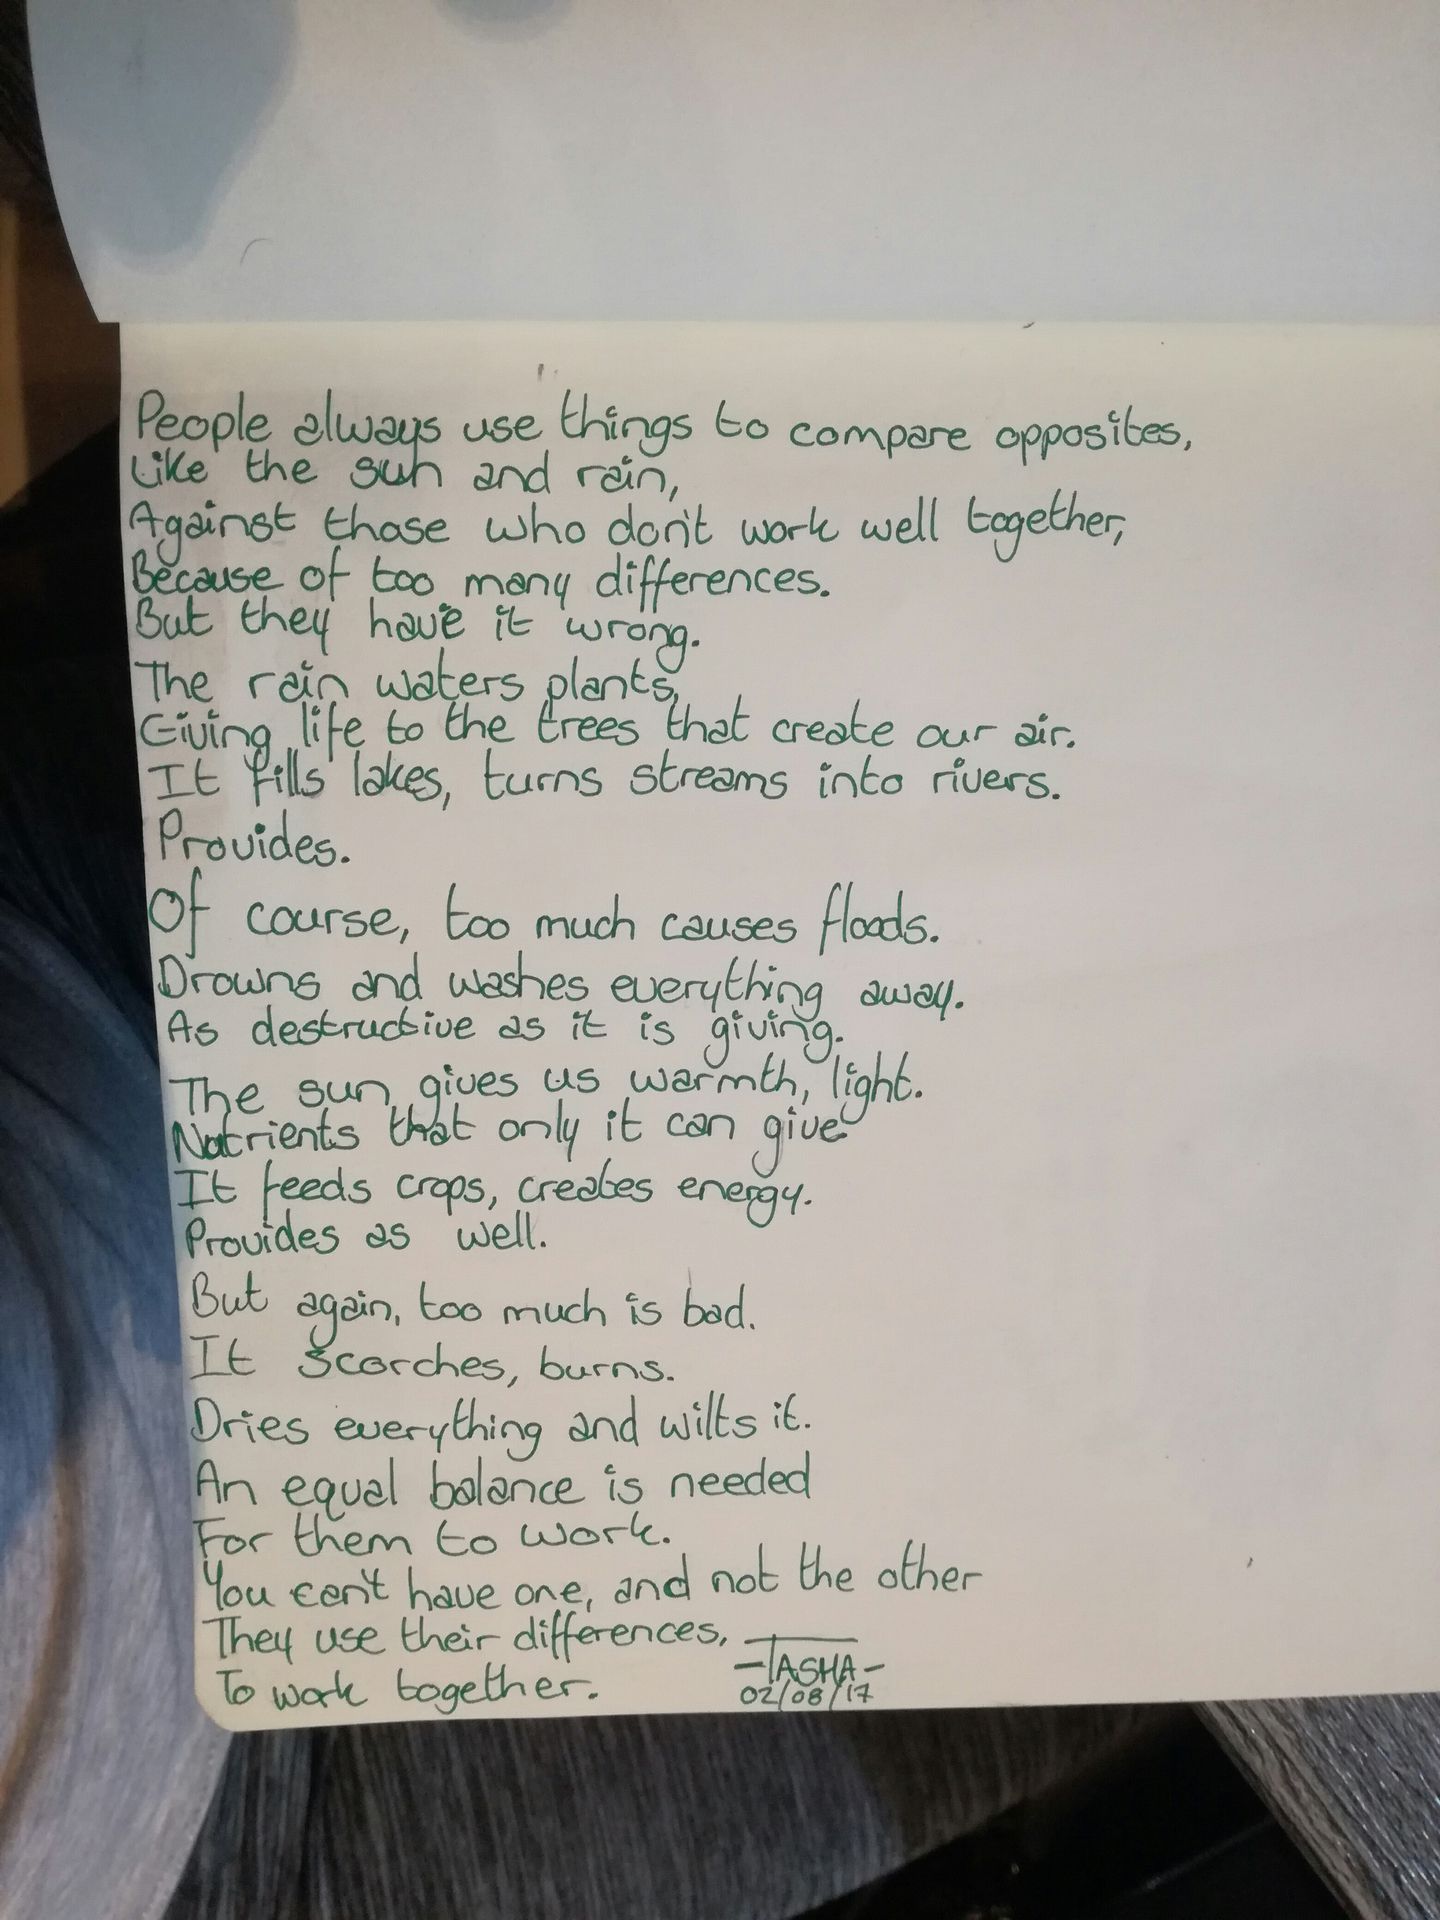 People always use things to compare opposites,
Like the sun and rain,
Against those who don't work well together,
Because of too many differences.
But they have it wrong.
The rain waters plants,
Giving life to the trees that create our air.
It fills lakes, turns streams into rivers.
Provides.
Of course, too much causes floods.
Drowns and washes everything away.
As destructive as it is giving.
The sun gives us warmth, light.
Nutrients that only it can give
It feeds crops, creates energy.
Provides as well.
But again, too much is bad.
It scorches, burns.
Dries everything and wilts it.
An equal balance is needed
For them to work.
You can't have one, and not the other
They use their differences,
To work together.
-TASHA-
02/08/17